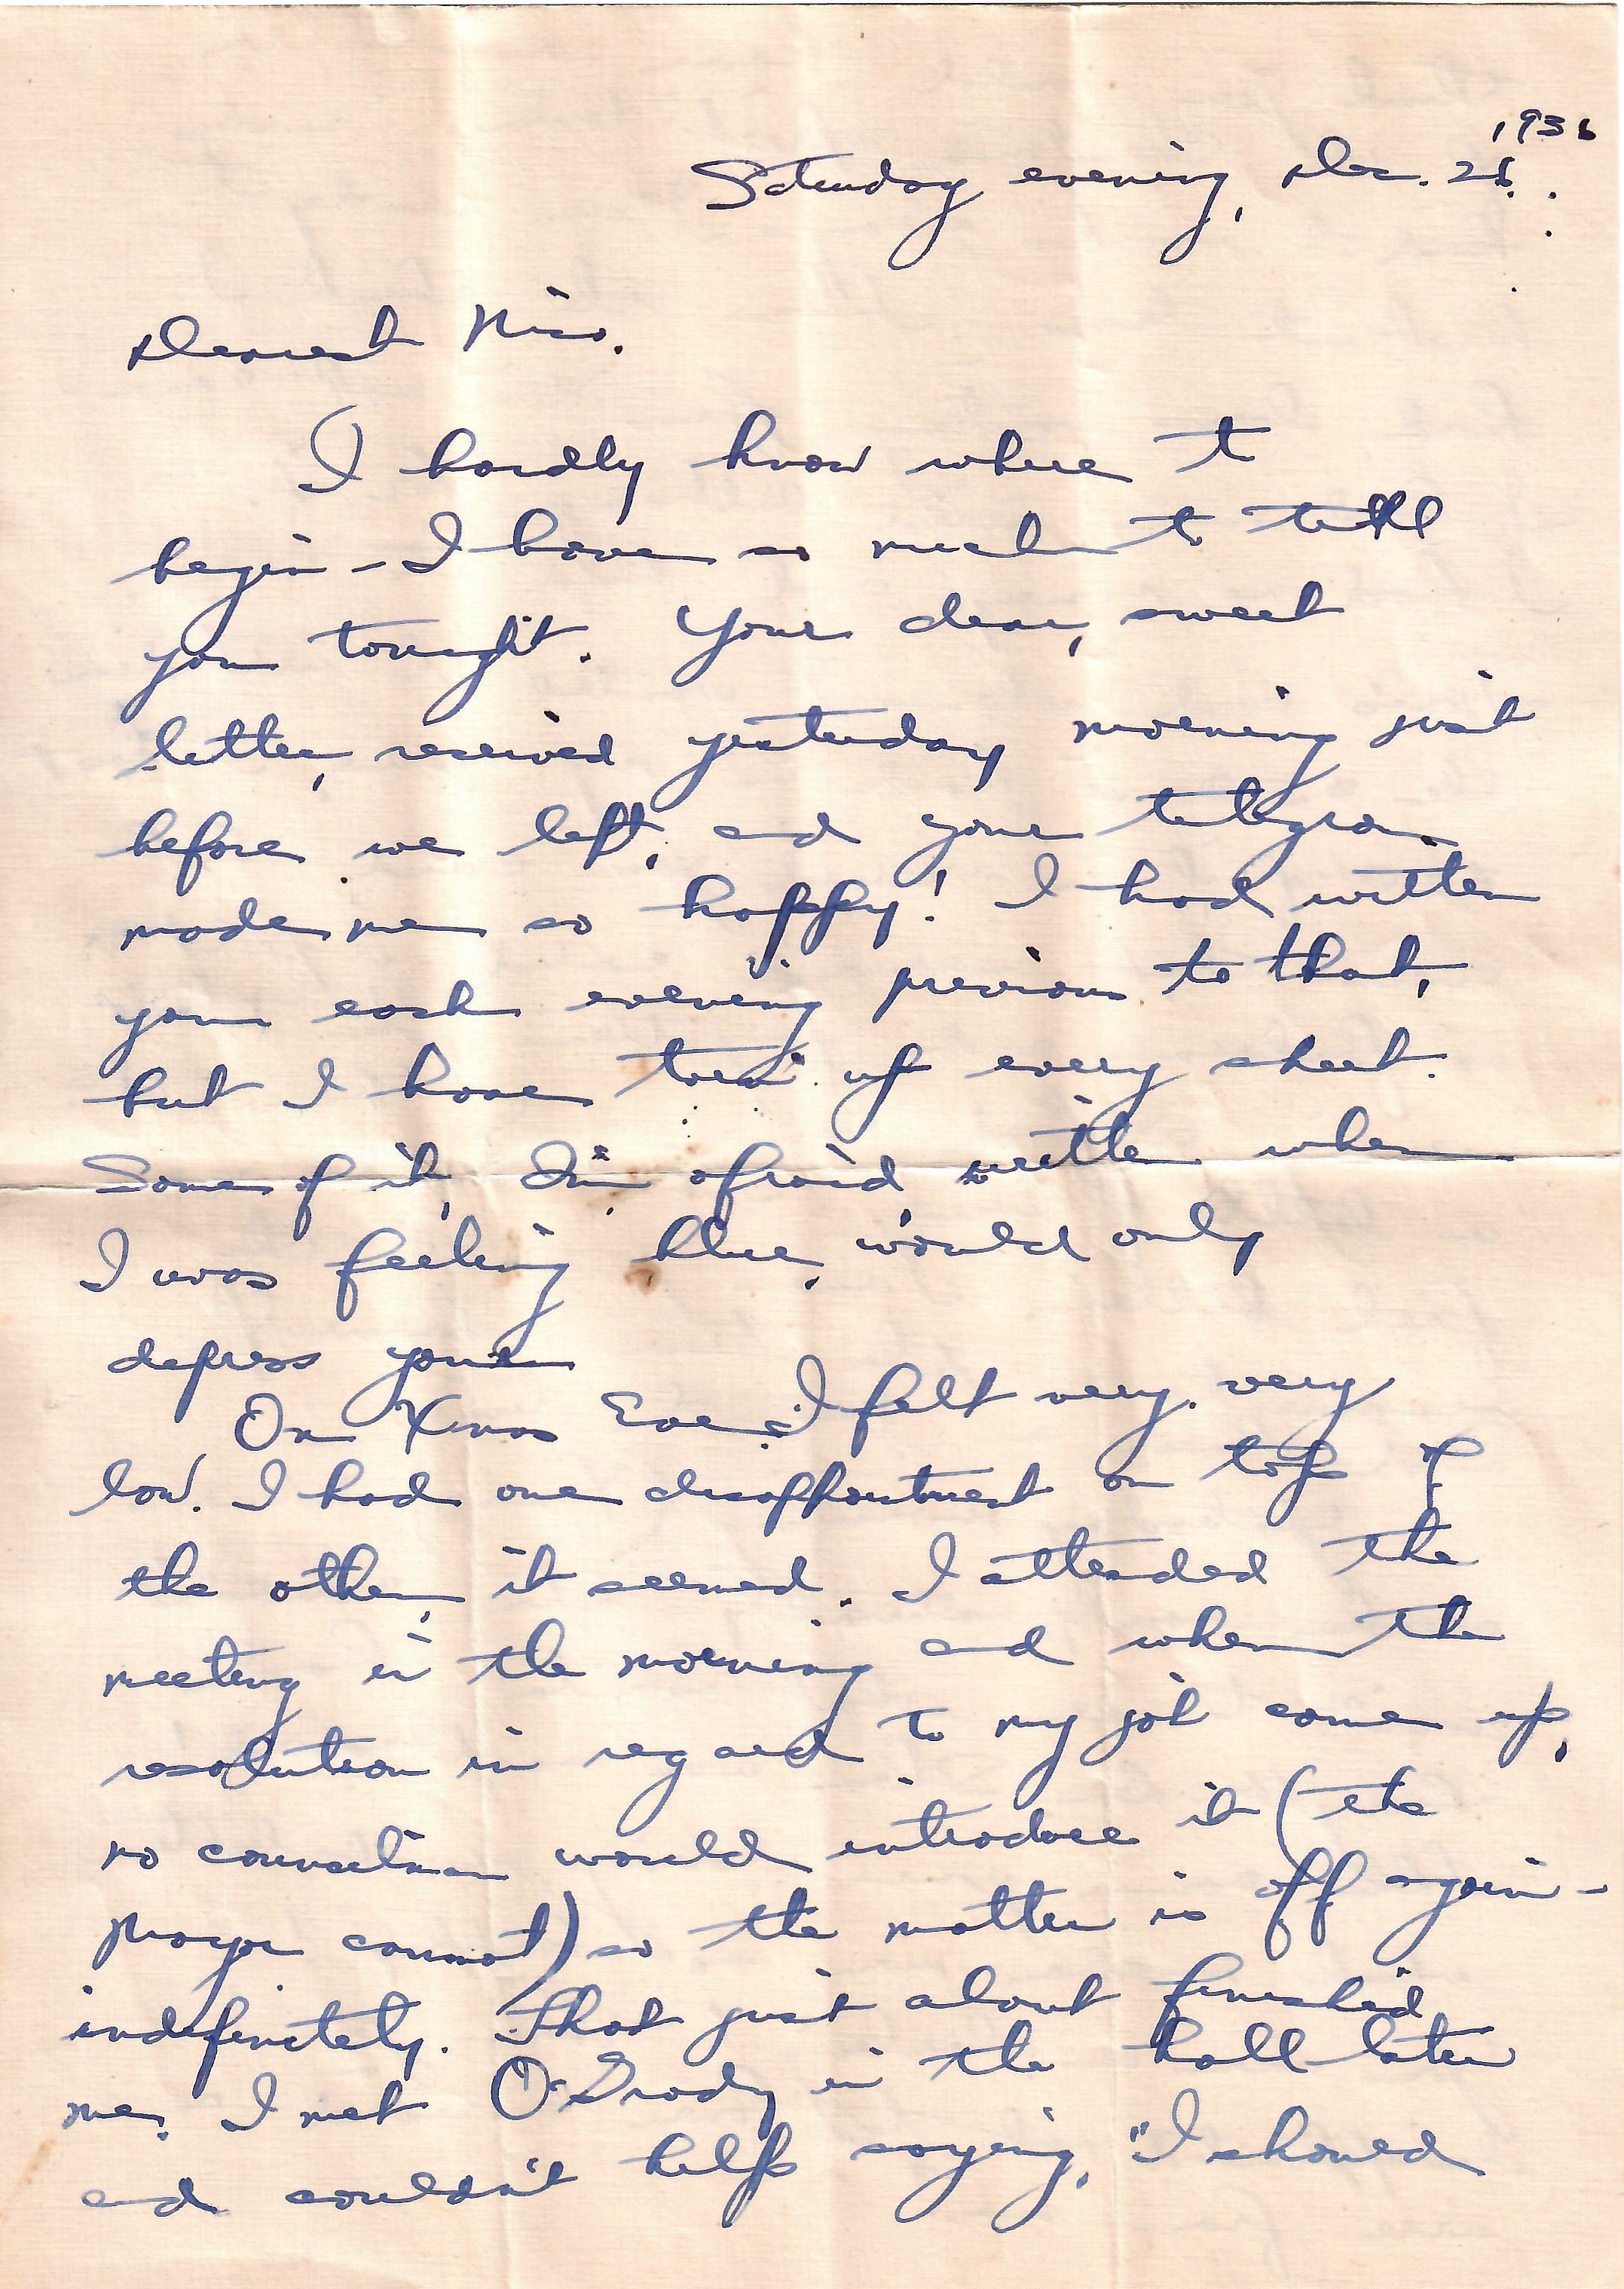 1936
Saturday evening, Dec. 26.
Dearest
I hardly know where to
begin - I have so much to tell
you tonight. Your dear, sweet
letter, received yesterday morning just
before we left, and your telegram
made me so happy! I had written
you each evening previous to that,
but I have torn up every sheet.
Some of it, I'm afraid written when
I was feeling blue, would only
depress you.
On Xmas Eve I felt very, very
low. I had one disappointment on top of
the other, it seemed. I attended the
meeting in the morning and when the
resolution in regard to my job came up,
no councilman would introduce it (the
Mayor cannot) so the matter is off again -
indefinitely. That just about finished
me. I met O'Grady in the hall later
and couldn't help saying, "I should